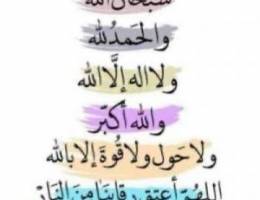 سبحان الله
والحمد لله
ولا اله إلا الله
والله أكبر
ولا حول ولا قوة إلا بالله
اللهم أعتق رقابنا من النار